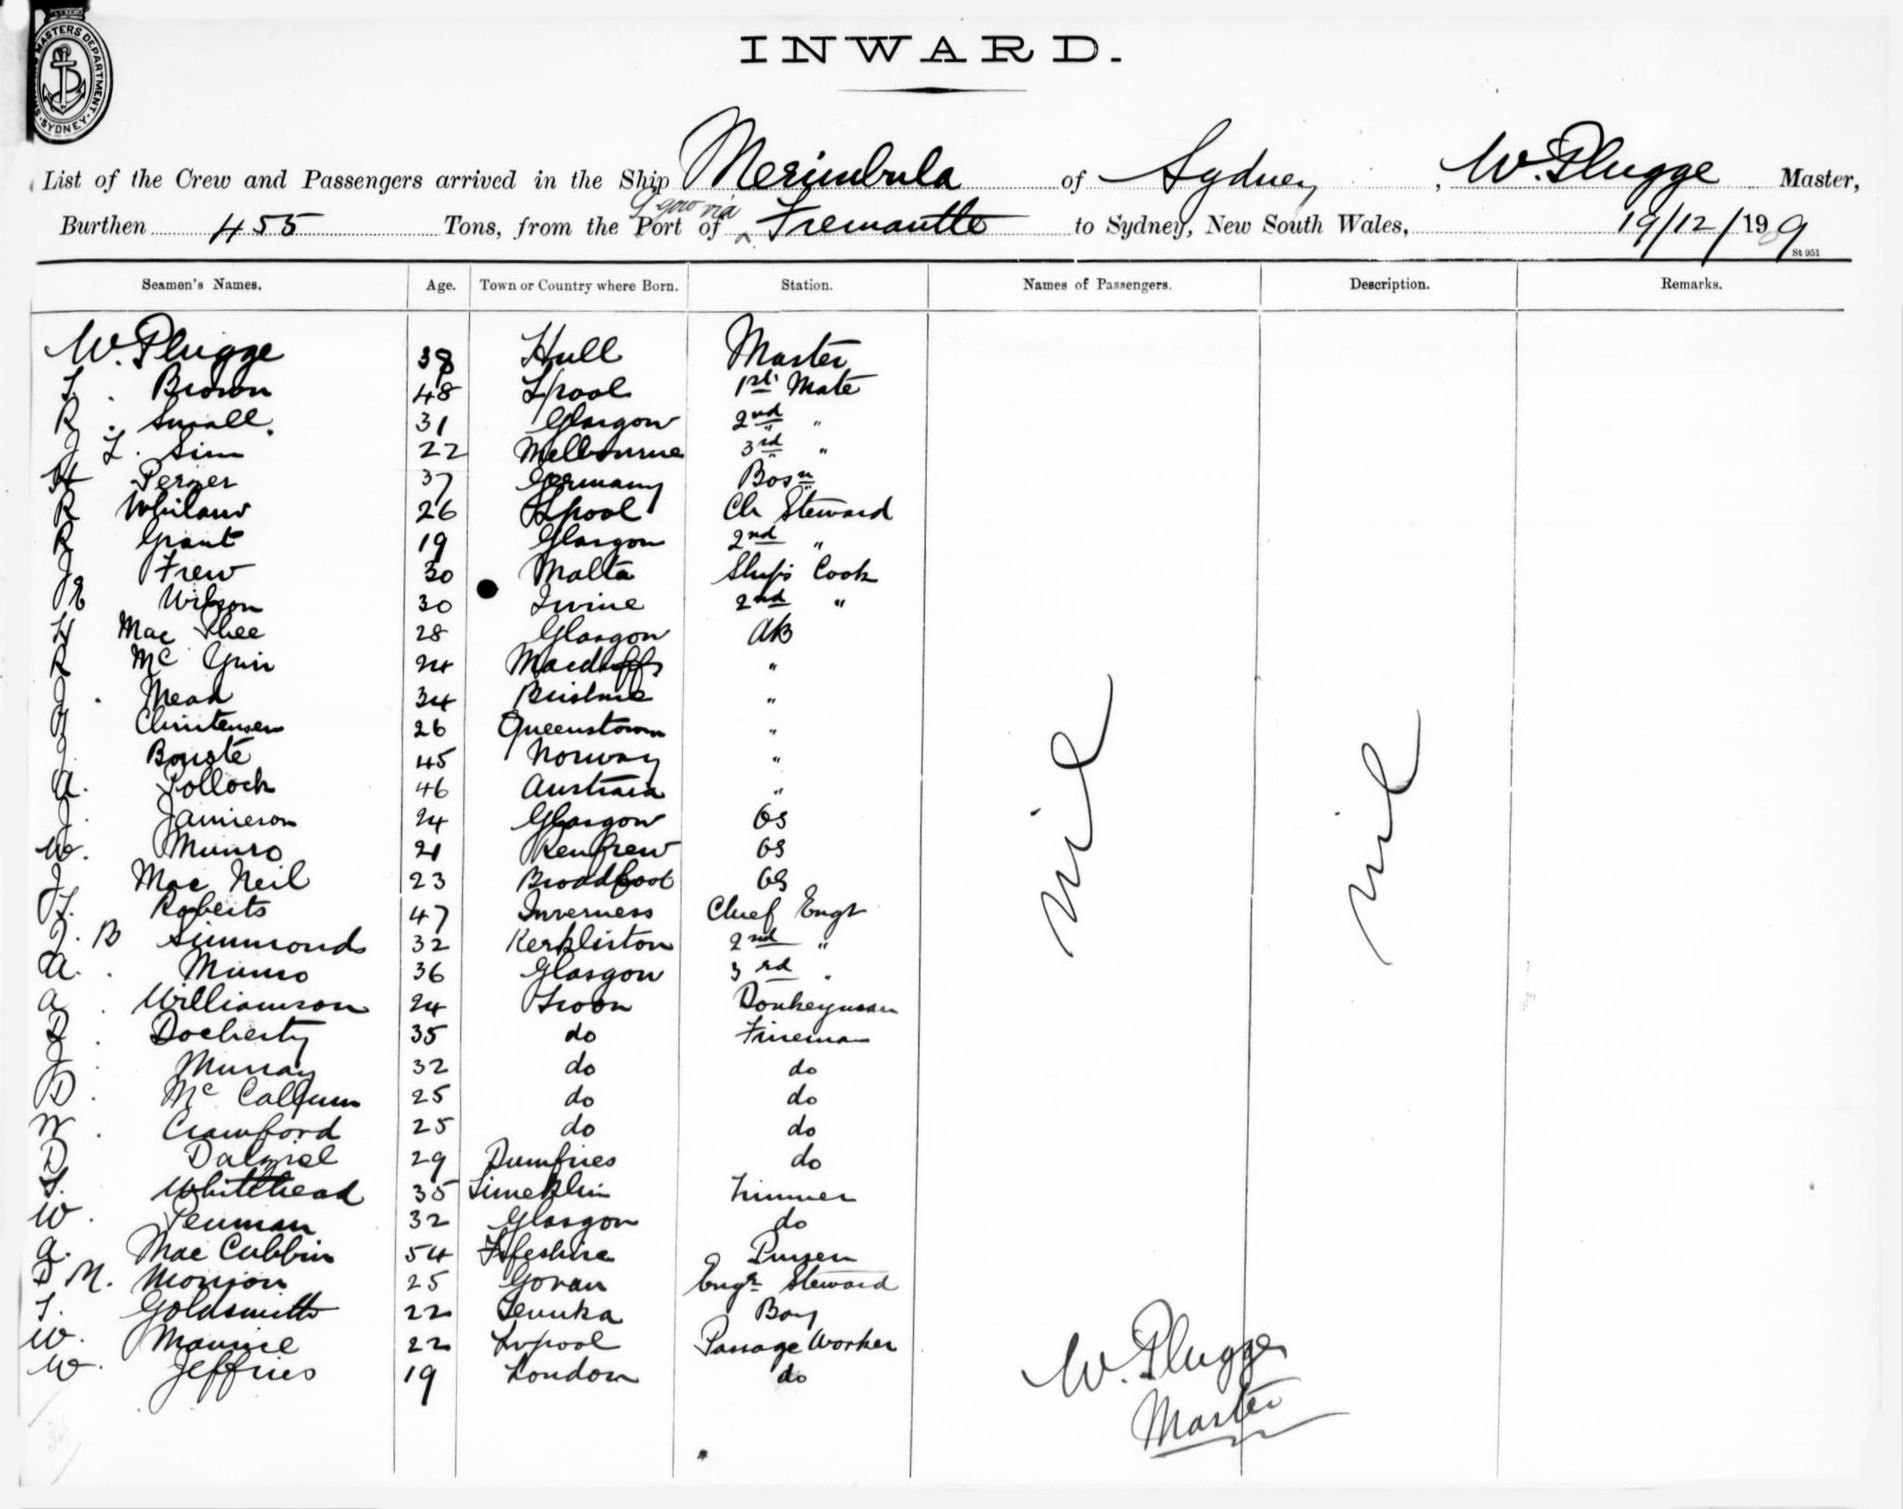 MASTERS DEPARTMENT SYDNEY
INWARD.
List of the Crew and Passengers arrived in the Ship Merimbula of Sydney, W. Plugge Master,
Gow via
Burthen 455 Tons, from the Port of ^ Fremantle to Sydney, New South Wales, 19/12/1909
St 951
Seamen's Names. Age. Town or Country where Born. Station. Names of Passengers. Description. Remarks.
W. Plugge 38 Hull Master
T. Brown 48 Lpool 1st Mate
R. Small. 31 Glasgow 2nd "
J L. Sim 22 Melbourne 3rd "
H Perger 37 Germany Bosn
R 26 Lpool Ch Steward
R Grant 19 Glasgow 2nd "
J Frew 30 Malta Ships Cook
Wilson 30 Irvine 2nd "
H Mac Phee 28 Glasgow AB
R Mc 24 Macduff "
J. Mead 34 Brisbane "
Christensen 26 Queenstown "
J 45 Norway "
A. Pollock 46 "
J. Jamieson 24 Glasgow OS
W. Munro 21 Renfrew OS
J Mac Neil 23 Broadfoot OS
T. Roberts 47 Inverness Chief Engr
J. B Simmonds 32 Kerkliston 2nd "
A. Munro 36 Glasgow 3rd "
A. Williamson 24 Troon Donkeyman
D. Docherty 35 do Fireman
J. Murray 32 do do
D. Mc Callum 25 do do
W. Crawford 25 do do
D Dalziel 29 Dumfries do
T. Whitehead 35 Limeklin Trimmer
W. Penman 32 Glasgow do
A. Mac Cubbin 54 Fifeshire Purser
D M. Morrison 25 Govan Engr Steward
T. Goldsmith 22 Levuka Boy
W. Maurice 22 Lvpool Passage Worker
W. Jeffries 19 London do
nil nil
W. Plugge
Master